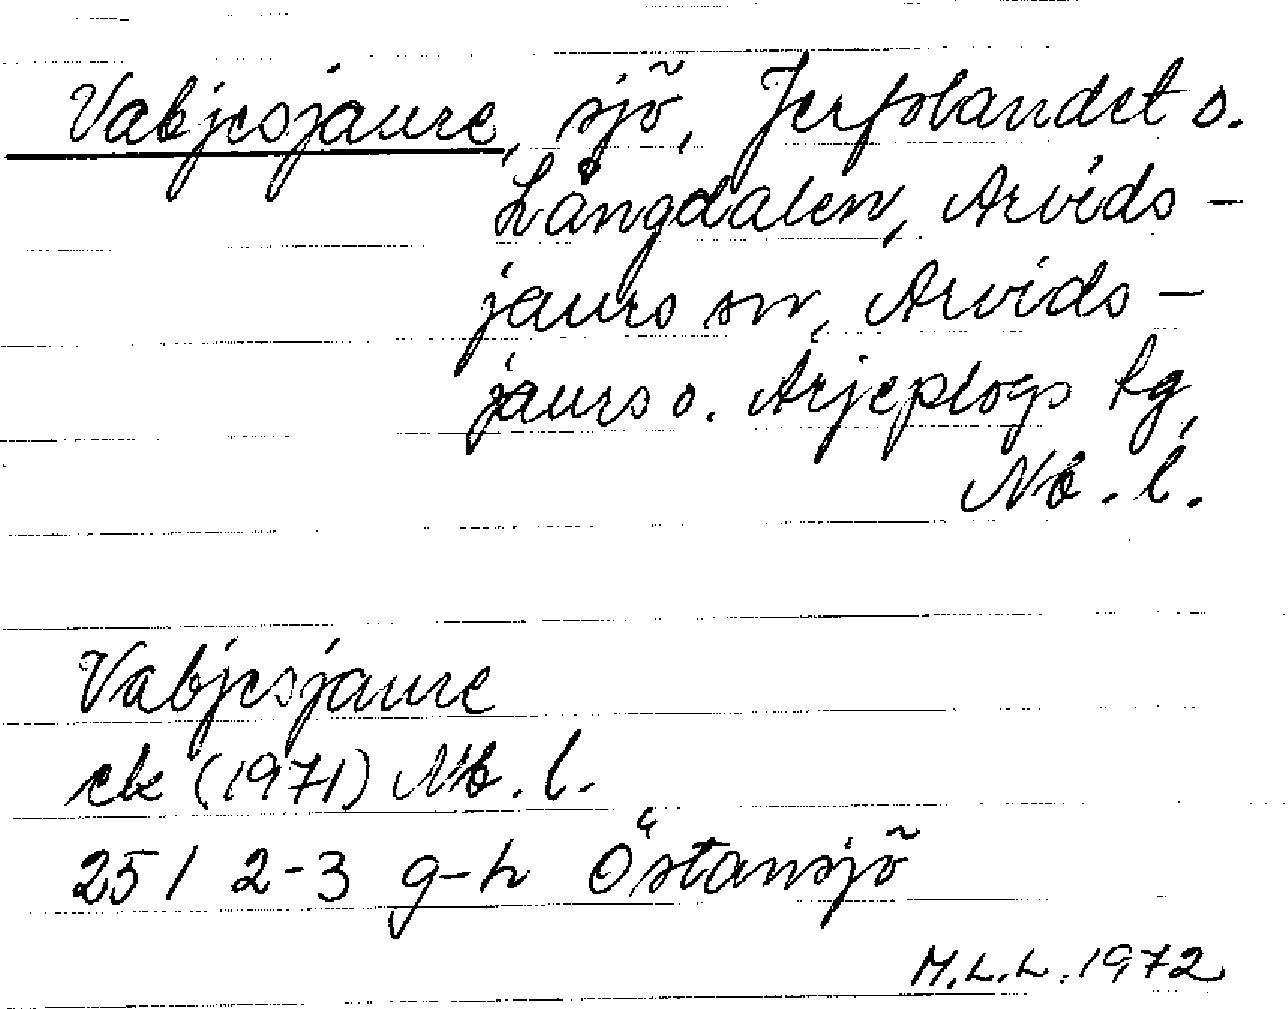 Vabjesjaure, sjö, Jerfolandet o.
Långdalen, Arvids-
jaurs sn, Arvids-
jaurs o. Arjeplogs tg,
Nb. l.
Vabjesjaure
ek (1971) Nb. l.
25 I 2-3 g-h Östansjö
M.L.L. 1972